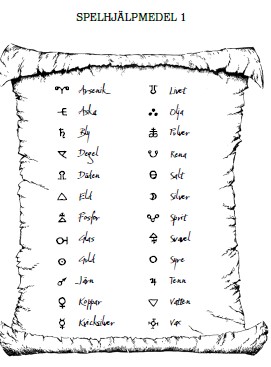 SPELHJÄLPMEDEL 1
Arsenik
Aska
Bly
Degel
Döden
Eld
Fosfor
Glas
Guld
Järn
Koppar
Kvicksilver
Livet
Olja
Pulver
Rena
Salt
Silver
Sprit
Svavel
Syre
Tenn
Vatten
Vax